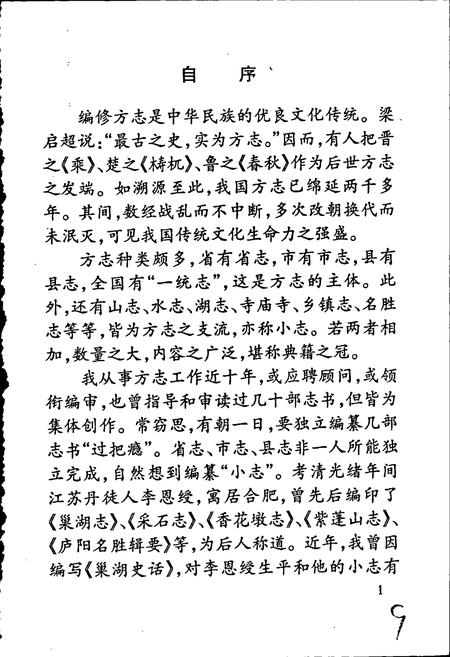 自 序
编修方志是中华民族的优良文化传统。梁
启超说：“最古之史，实为方志。”因而，有人把晋
之《乘》、楚之《梼杌》、鲁之《春秋》作为后世方志
之发端。如溯源至此，我国方志已绵延两千多
年。其间，数经战乱而不中断，多次改朝换代而
未泯灭，可见我国传统文化生命力之强盛。
方志种类颇多，省有省志，市有市志，县有
县志，全国有“一统志”，这是方志的主体。此
外，还有山志、水志、湖志、寺庙寺、乡镇志、名胜
志等等，皆为方志之支流，亦称小志。若两者相
加，数量之大，内容之广泛，堪称典籍之冠。
我从事方志工作近十年，或应聘顾问，或领
衔编审，也曾指导和审读过几十部志书，但皆为
集体创作。常窃思，有朝一日，要独立编纂几部
志书“过把瘾”。省志、市志、县志非一人所能独
立完成，自然想到编纂“小志”。考清光绪年间
江苏丹徒人李恩绶，寓居合肥，曾先后编印了
《巢湖志》、《采石志》、《香花墩志》、《紫蓬山志》、
《庐阳名胜辑要》等，为后人称道。近年，我曾因
编写《巢湖史话》，对李恩绶生平和他的小志有
1
9